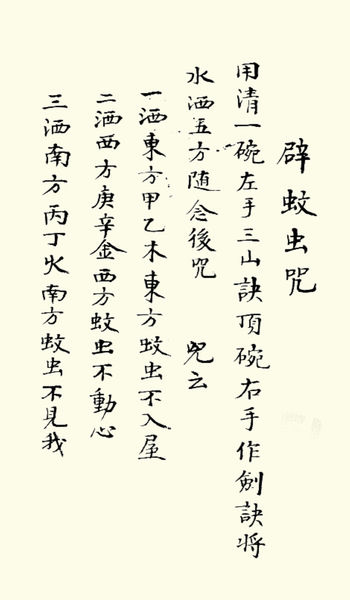 辟蚊虫咒
用清一碗左手三山訣頂碗右手作劍訣将
水洒五方随念後咒 咒云
一洒東方甲乙木東方蚊虫不入屋
二洒西方庚辛金西方蚊虫不動心
三洒南方丙丁火南方蚊虫不見我